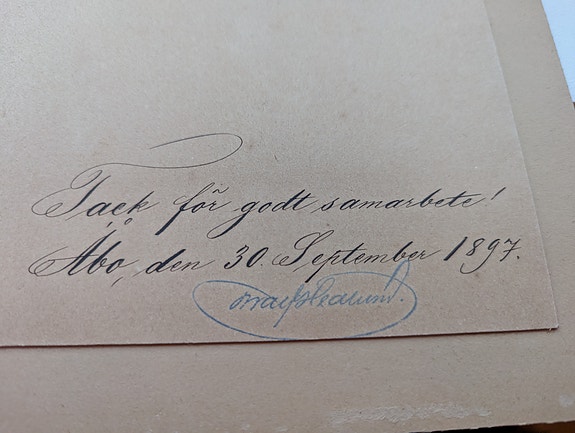 Tack för godt samarbete!
Åbo, den 30. September 1897.